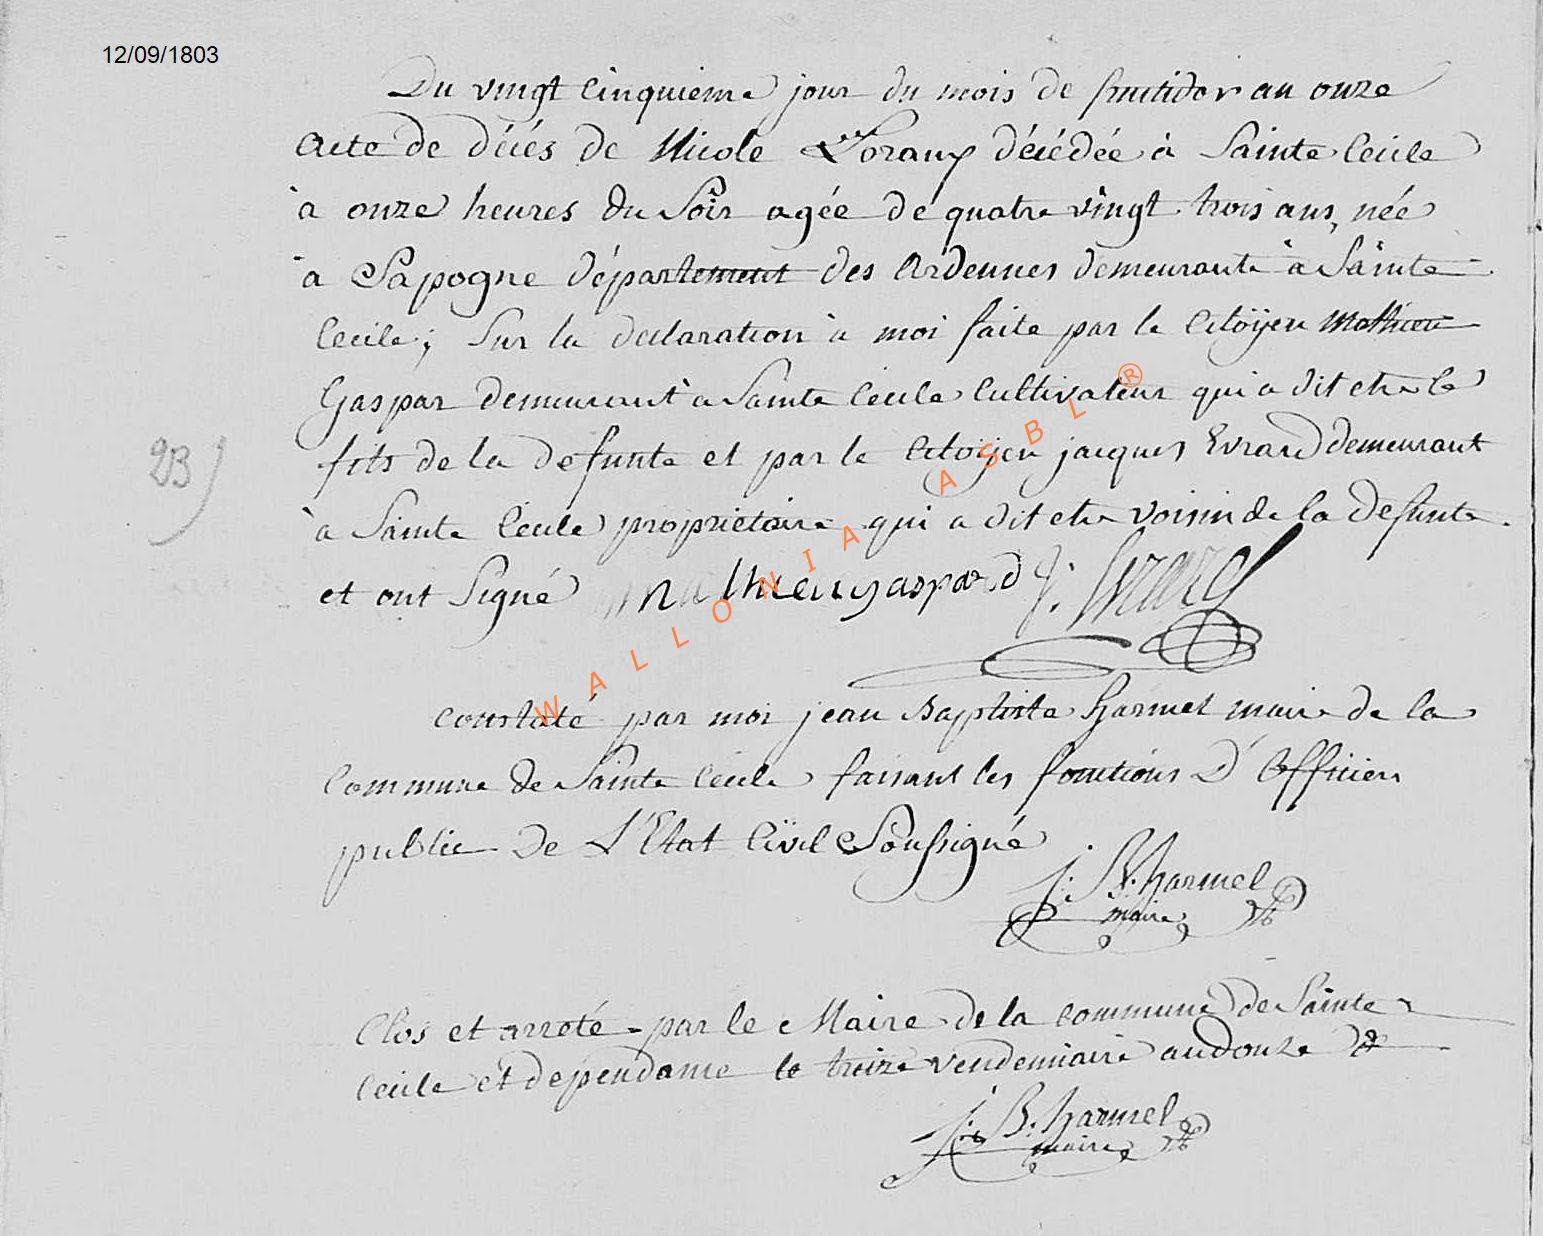 12/09/1803
Du vingt cinquieme jour du mois de fructidor an onze
acte de décés de Nicole Loraux décédée à Sainte Cecile
à onze heures du Soir agée de quatre vingt trois ans, née
à Sapogne département des Ardennes demeurante à Sainte
Cecile, Sur la declaration à moi faite par le Citoÿen Mathieu
Gaspar demeurant à Sainte Cecile Cultivateur qui a dit etre le
fils de la defunte et par le Citoÿen jacques Evrard demeurant
23)
à Sainte Cecile propriétaire qui a dit etre voisin de la defunte.
et ont Signé mathieu gaspard J. Evrard
WALLONIA ASBL ®
constaté par moi jean Baptiste Harmel maire de la
Commune de Sainte Cecile faisant les fonctions D'Officier
public de L'Etat Civil Soussigné
J. B. harmel
maire
Clos et arreté par le Maire de la commune de Sainte
Cecile et dependance le treize vendemiaire an douze
J. B. harmel
maire